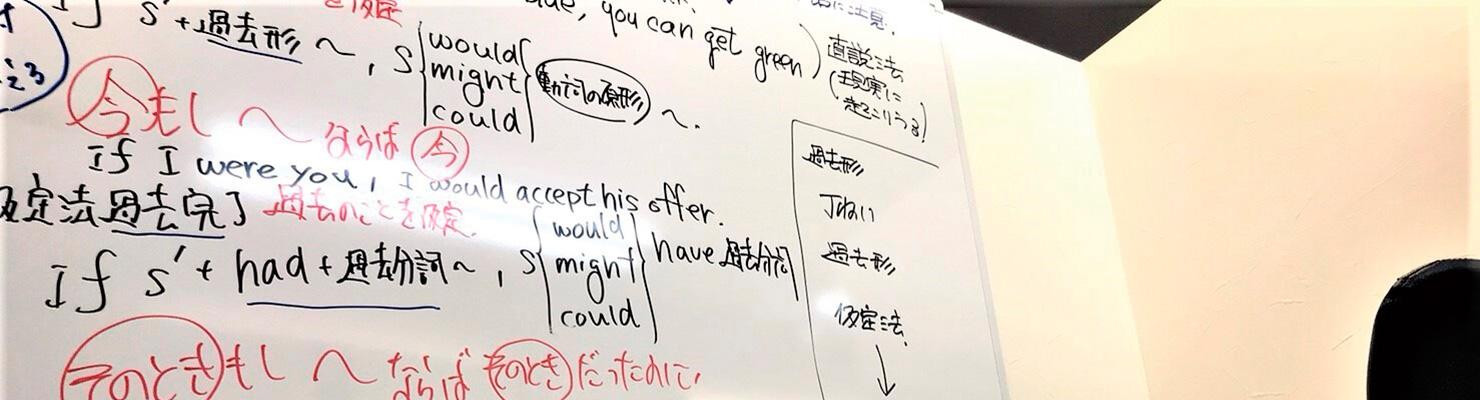 を仮定
, you can get green)
If S'+過去形 ～, S {would might could} 動詞の原形 ～.
直説法
(現実に
起こりうる)
今もし ～ ならば 今
If I were you, I would accept his offer.
仮定法過去完了 過去のことを仮定.
If S'+had+過去分詞～, S {would might could} have 過去分詞
そのときもし ～ ならば そのときだったのに,
過去形
丁ねい
過去形
仮定法